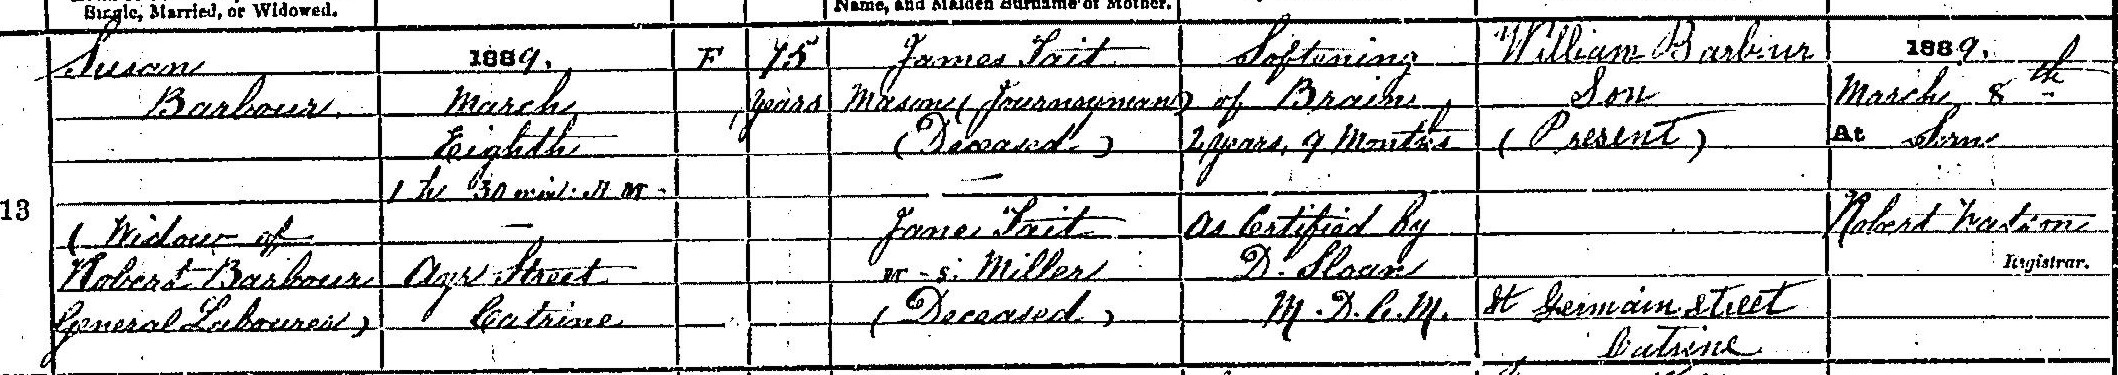 Single, Married, or Widowed.
Name, and Maiden Surname of Mother.
13
Susan
Barbour.
(Widow of
Robert Barbour
General Labourer)
1889.
March
Eighth
1 h 30 min. A.M.
Ayr Street
Catrine
F
75
years
James Tait
Mason (Journeyman)
(Deceased)
Jane Tait
m-s. Miller
(Deceased)
Softening
of Brain,
2 years, 9 Months
As Certified by
D. Sloan
M.D.C.M.
William Barbour
Son
(Present)
St Germain Street
Catrine
1889.
March 8th
At Sorn
Robert Watson
Registrar.